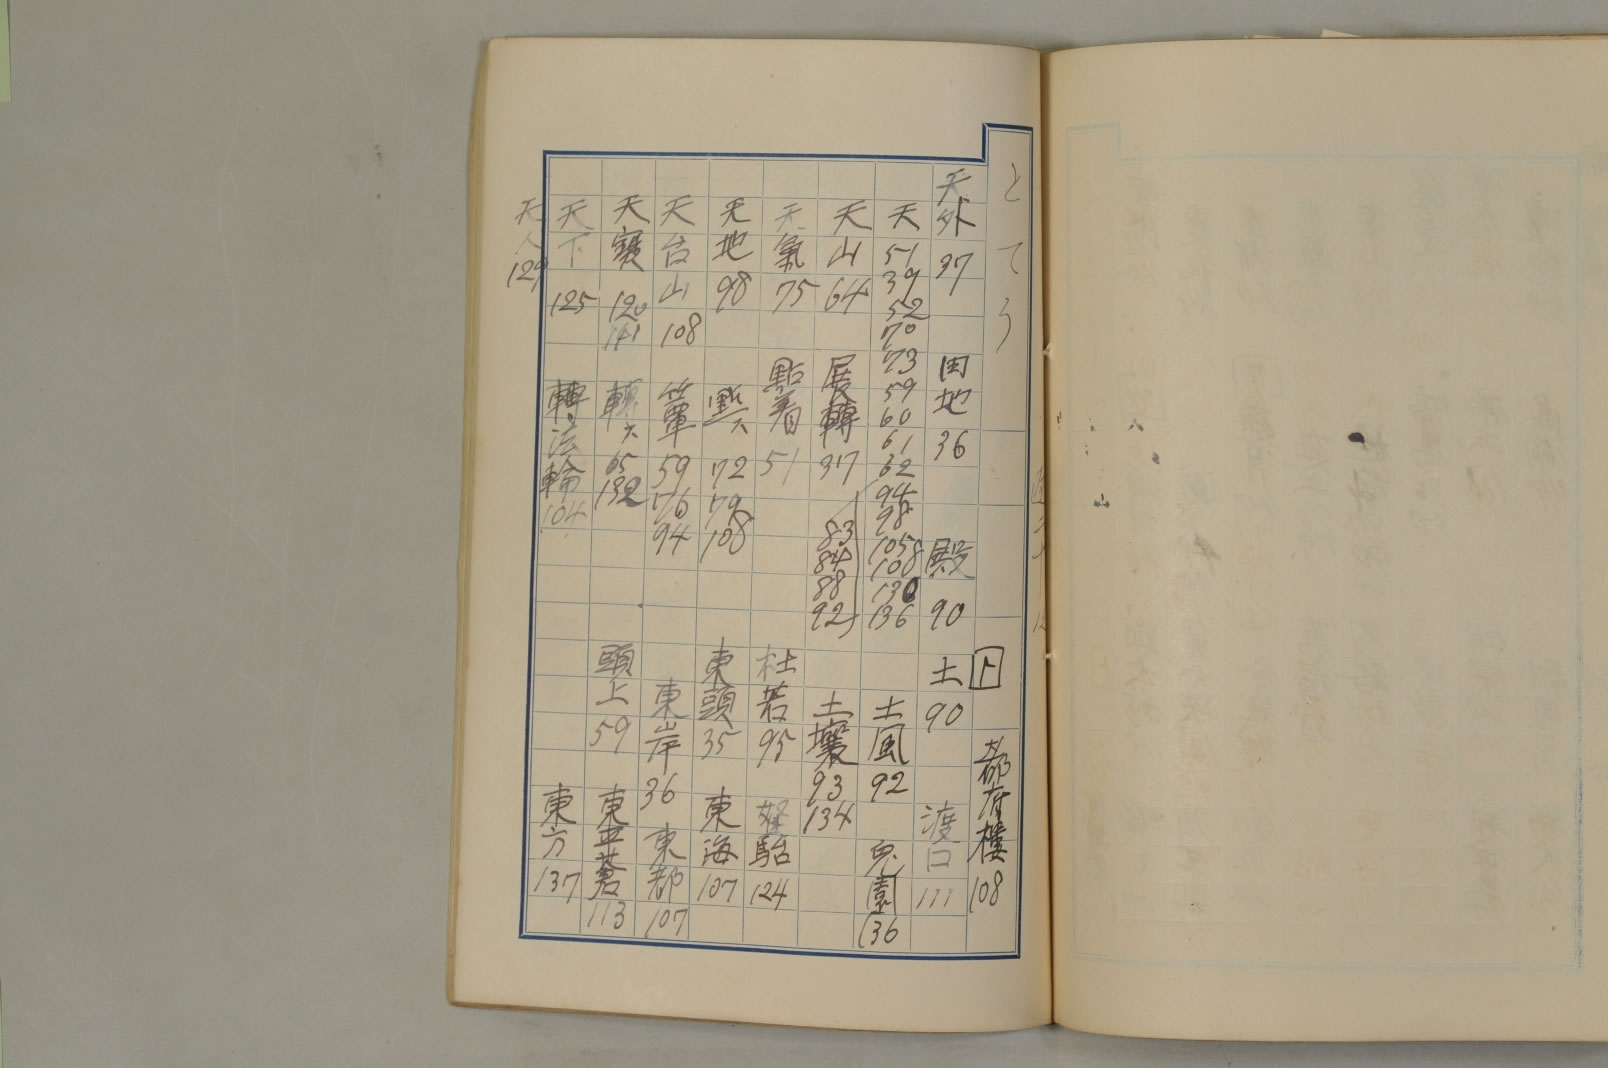 とてう
ト
都府樓 108
天外 37
田地 36
殿 90
土 90
渡口 111
天 51 39 52 70 73 59 60 61 62 94 98 105 108 130 136
83 84 88 92
土風 92
兎園 136
天山 64
展轉 37
土壤 93 134
天氣 75
點着 51
杜若 95
駑駘 124
天地 98
點々 72 79 108
東頭 35
東海 107
天台山 108
簟 59 76 94
東岸 36
東都 107
天寶 120 141
轉々 65 132
頭上 59
東平蒼 113
天下 125
轉法輪 104
東方 137
天人 129